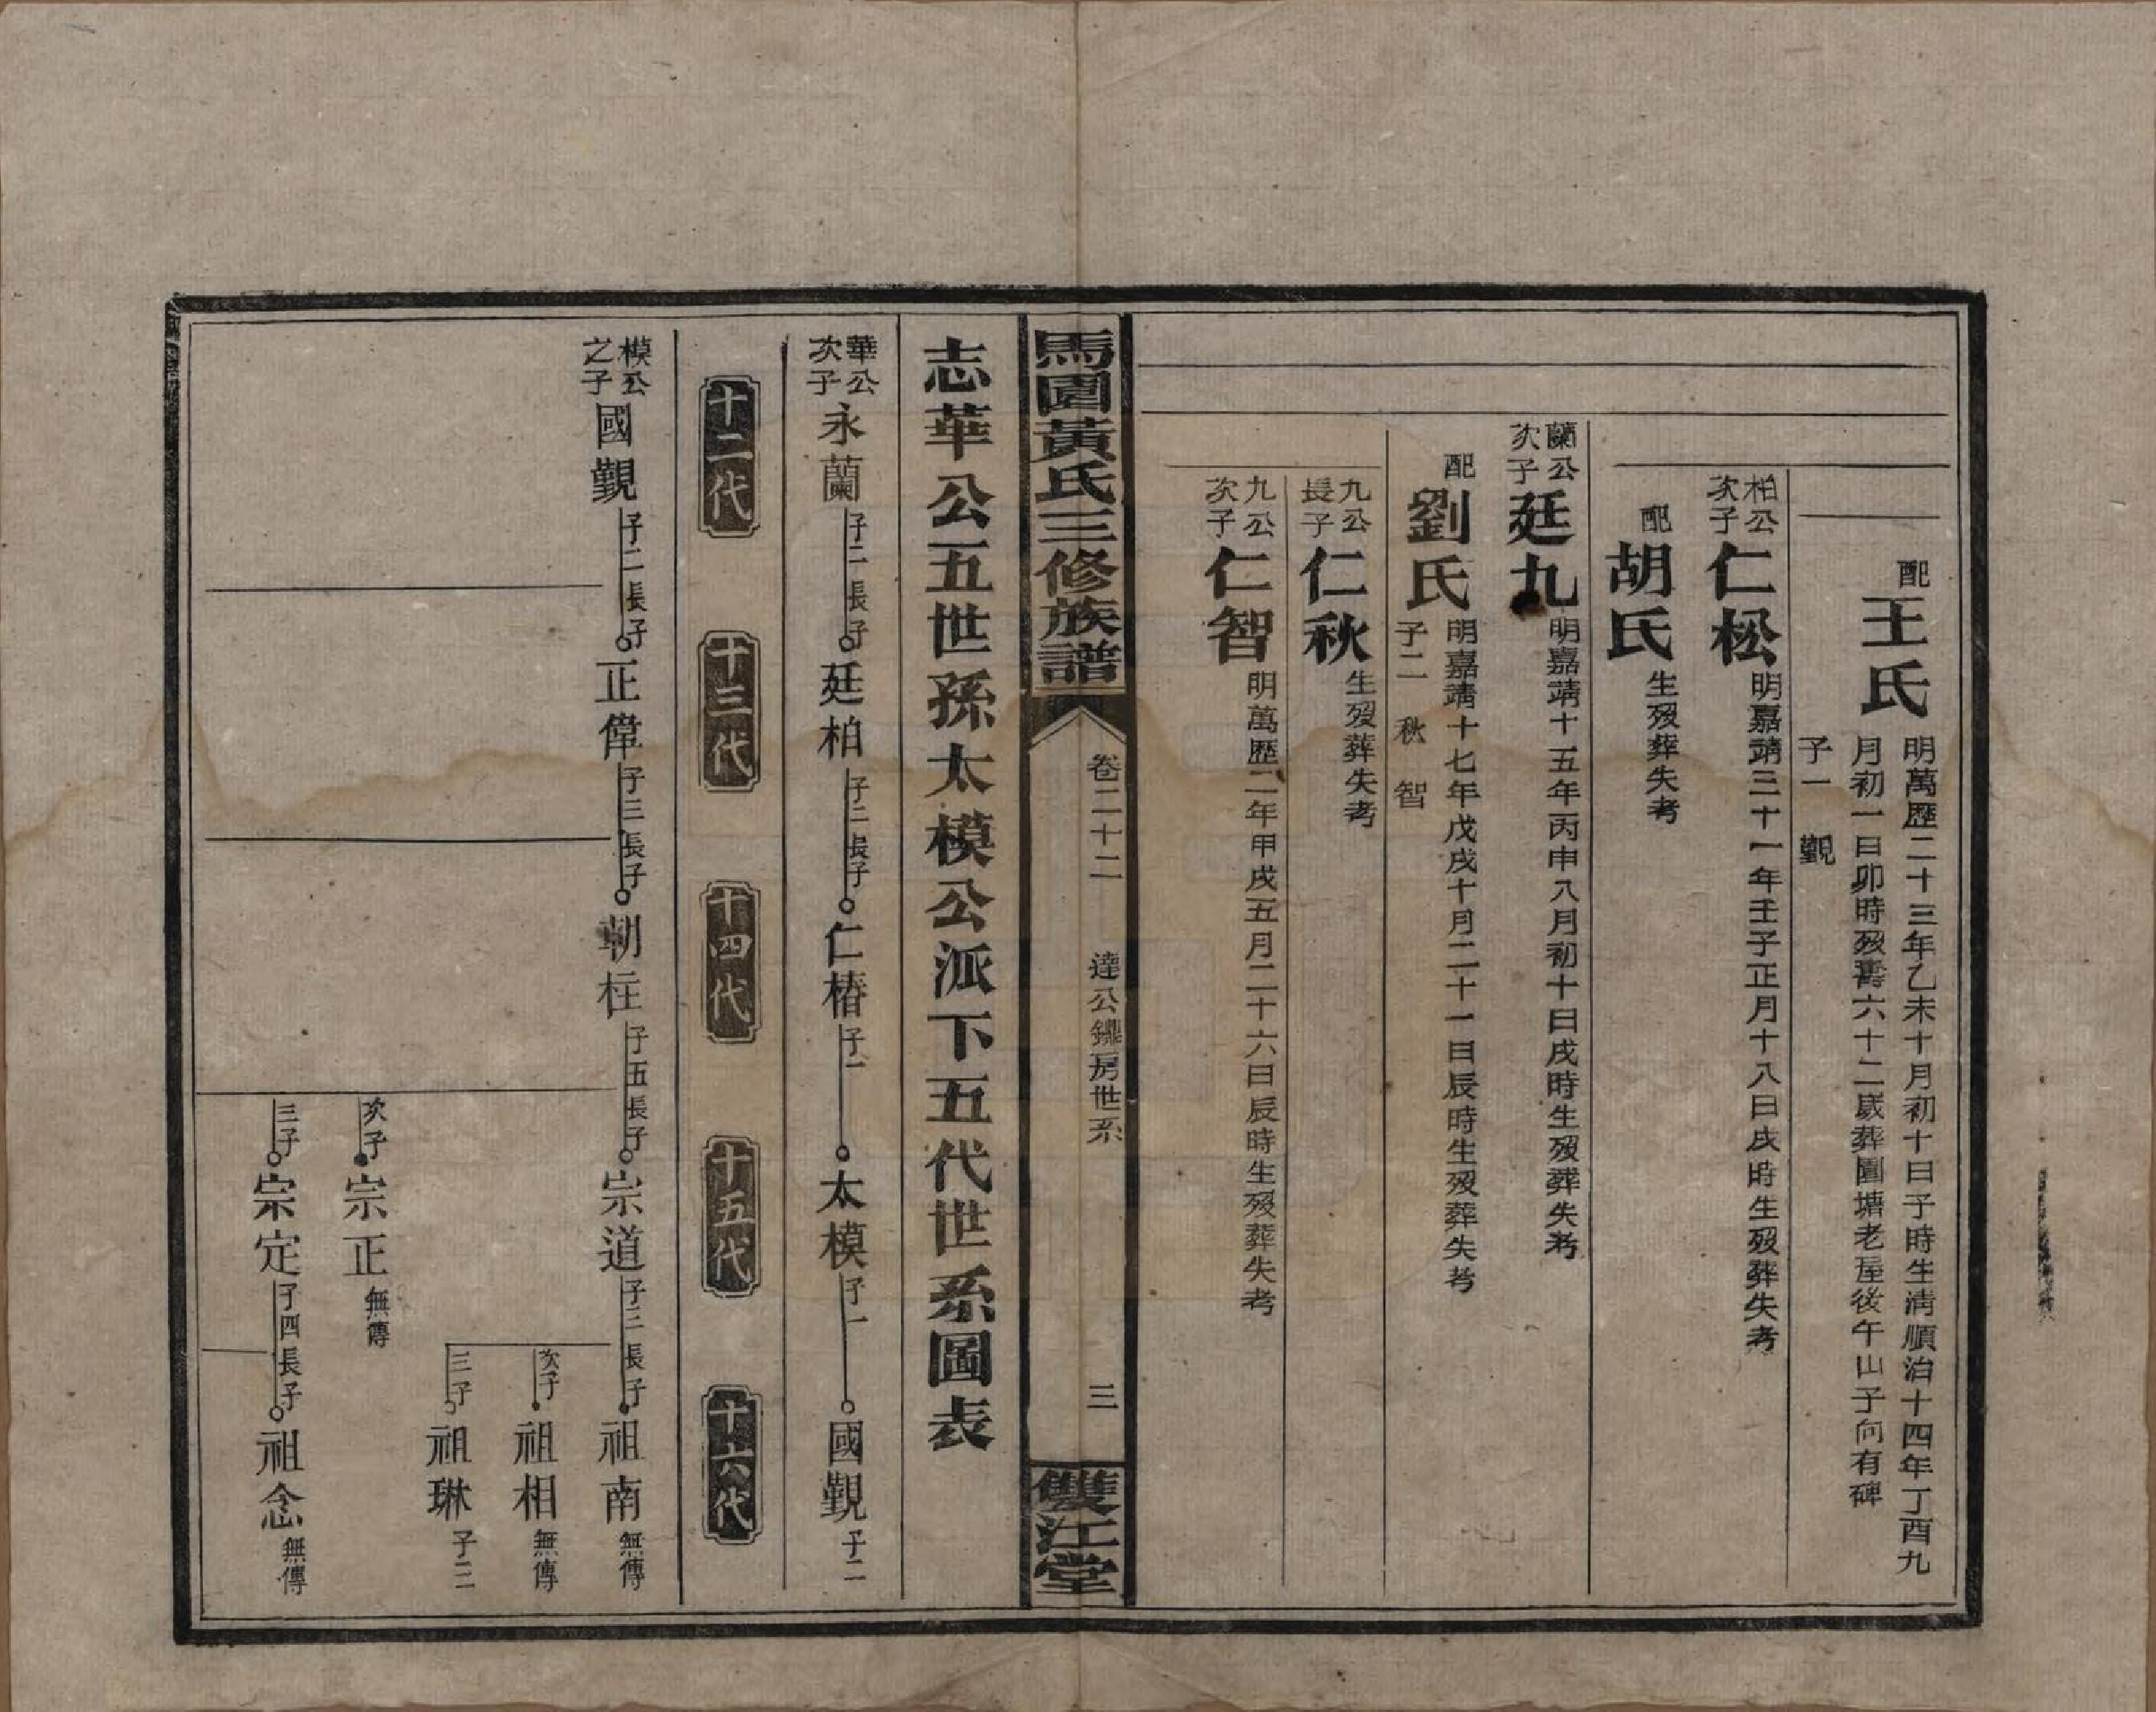 配王氏明萬歷二十三年乙未十月初十日子時生清順治十四年丁酉九
月初一日卯時歿壽六十二歲葬園塘老屋後午山子向有碑
子一 觀
柏公
次子
仁松明嘉靖三十一年壬子正月十八日戌時生歿葬失考
配胡氏生歿葬失考
蘭公
次子
廷九明嘉靖十五年丙申八月初十日戌時生歿葬失考
配劉氏明嘉靖十七年戊戌十月二十一日辰時生歿葬失考
子二 秋 智
九公
長子
仁秋生歿葬失考
九公
次子
仁智明萬歷二年甲戌五月二十六日辰時生歿葬失考
馬園黃氏三修族譜
卷二十二 達公 房世系
三
雙江堂
志華公五世孫太模公派下五代世系圖表
華公
次子
永蘭子二長子廷柏子二長子仁椿子一太模子一國觀子二
十二代 十三代 十四代 十五代 十六代
模公
之子
國觀子二長子正偉子三長子朝柱子五長子宗道子三長子祖南無傳
次子祖相無傳
三子祖琳子二
次子宗正無傳
三子宗定子四長子祖念無傳